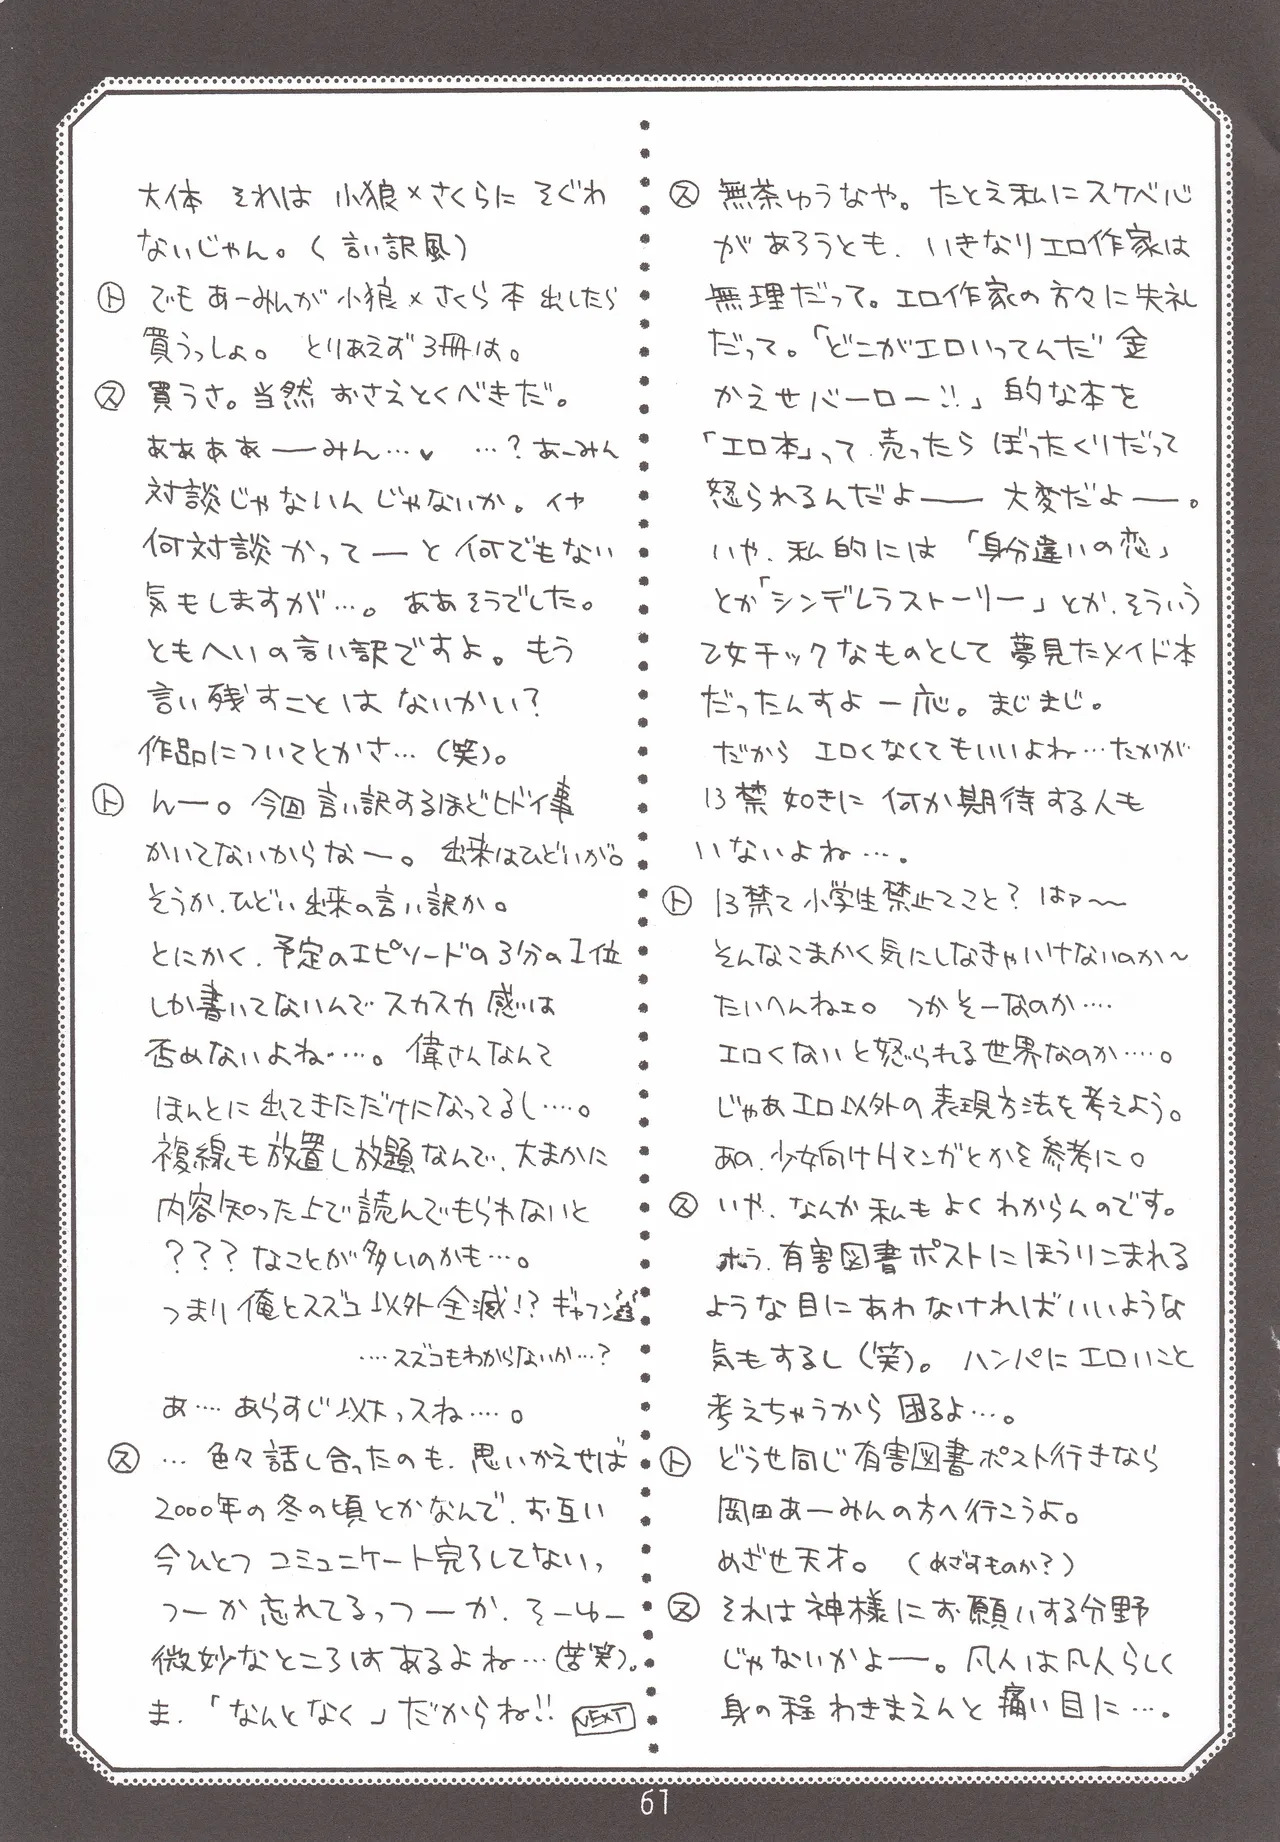 大体 それは 小狼×さくらに そぐわ
ないじゃん。(言い訳風)
ト でも あーみんが 小狼×さくら 本 出したら
買うっしょ。 とりあえず 3冊は。
ス 買うさ。当然 おさえとくべきだ。
ああああーーみん…♥ …?あーみん
対談じゃないんじゃないか。イヤ
何対談かってーと何でもない
気もしますが…。ああそうでした。
ともへいの言い訳ですよ。もう
言い残すことは ないかい?
作品についてとかさ…(笑)。
ト んー。今回 言い訳するほどヒドイ事
かいてないからなー。出来はひどいが。
そうか、ひどい出来の言い訳か。
とにかく、予定のエピソードの3分の1位
しか書いてないんで スカスカ 感は
否めないよね…。偉さんなんて
ほんとに出てきただけになってるし…。
複線も放置し放題なんで、大まかに
内容知った上で読んでもらわないと
???なことが多いのかも…。
つまり 俺とスズコ以外全滅!? ギャフン
…スズコもわからないか…?
あ… あらすじ以下っスね…。
ス … 色々話し合ったのも、思いかえせば
2000年の冬の頃とかなんで、お互い
今ひとつ コミュニケート完了してないっ
つーか忘れてるっつーか、そーゆー
微妙なところはあるよね…(苦笑)。
ま、「なんとなく」だからね!! NEXT
ス 無茶ゆうなや。たとえ私にスケベ心
があろうとも、いきなりエロ作家は
無理だって。エロ作家の方々に失礼
だって。「どこがエロいってんだ 金
かえせバーロー!!」的な本を
「エロ本」って売ったら ぼったくりだって
怒られるんだよー 大変だよー。
いや、私的には「身分違いの恋」
とか「シンデレラストーリー」とか、そういう
乙女チックなものとして夢見たメイド本
だったんすよ一応。まじまじ。
だから エロくなくてもいいよね…たかが
13禁如きに 何か期待する人も
いないよね…。
ト 13禁て小学生禁止てこと? はァ〜
そんなこまかく気にしなきゃいけないのか〜
たいへんねェ。つかそーなのか…
エロくないと怒られる世界なのか…。
じゃあエロ以外の表現方法を考えよう。
あの、少女向けHマンガとかを参考に。
ス いや、なんか私もよくわからんのです。
ホラ、有害図書ポストにほうりこまれる
ような目にあわなければいいような
気もするし(笑)。ハンパにエロいこと
考えちゃうから 困るよ…。
ト どうせ同じ有害図書ポスト行きなら
岡田あーみんの方へ行こうよ。
めざせ天才。(めざすものか?)
ス それは神様にお願いする分野
じゃないかよー。凡人は凡人らしく
身の程わきまえんと痛い目に…。
61